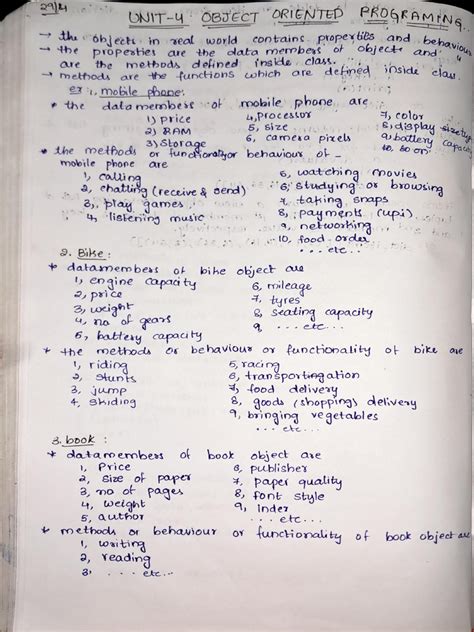 29/4
UNIT-4 OBJECT ORIENTED PROGRAMING
→ the objects in real world contains properties and behaviour
→ the properties are the data members of object and
are the methods defined inside class.
→ methods are the functions which are defined inside class.
ex: 1, mobile phone:
* the datamembers of mobile phone are
1) price 4, Processor 7, color
2) RAM 5, size 8, display size
3) Storage 6, camera pixels 9, battery capacity
10, so on
* the methods or functionality or behaviour of -
mobile phone are
1, calling 6, watching movies
2, chatting (receive & send) 6, studying or browsing
3, play games 7, taking snaps
4, listening music 8, payments (upi)
9, networking
10, food order
... etc...
2. Bike:
* datamembers of bike object are
1, engine capacity 6, mileage
2, price 7, tyres
3, weight 8, seating capacity
4, no of gears 9, ... etc...
5, battery capacity
* the methods or behaviour or functionality of bike are
1, riding 5, racing
2, stunts 6, transportingation
3, jump 7, food delivery
4, skiding 8, goods (shopping) delivery
9, bringing vegetables
... etc...
3. book:
* datamembers of book object are
1, Price 6, publisher
2, size of paper 7, paper quality
3, no of pages 8, font style
4, weight 9, Index
5, author ... etc...
* methods or behaviour or functionality of book object are
1, writing
2, reading
3, ... etc...